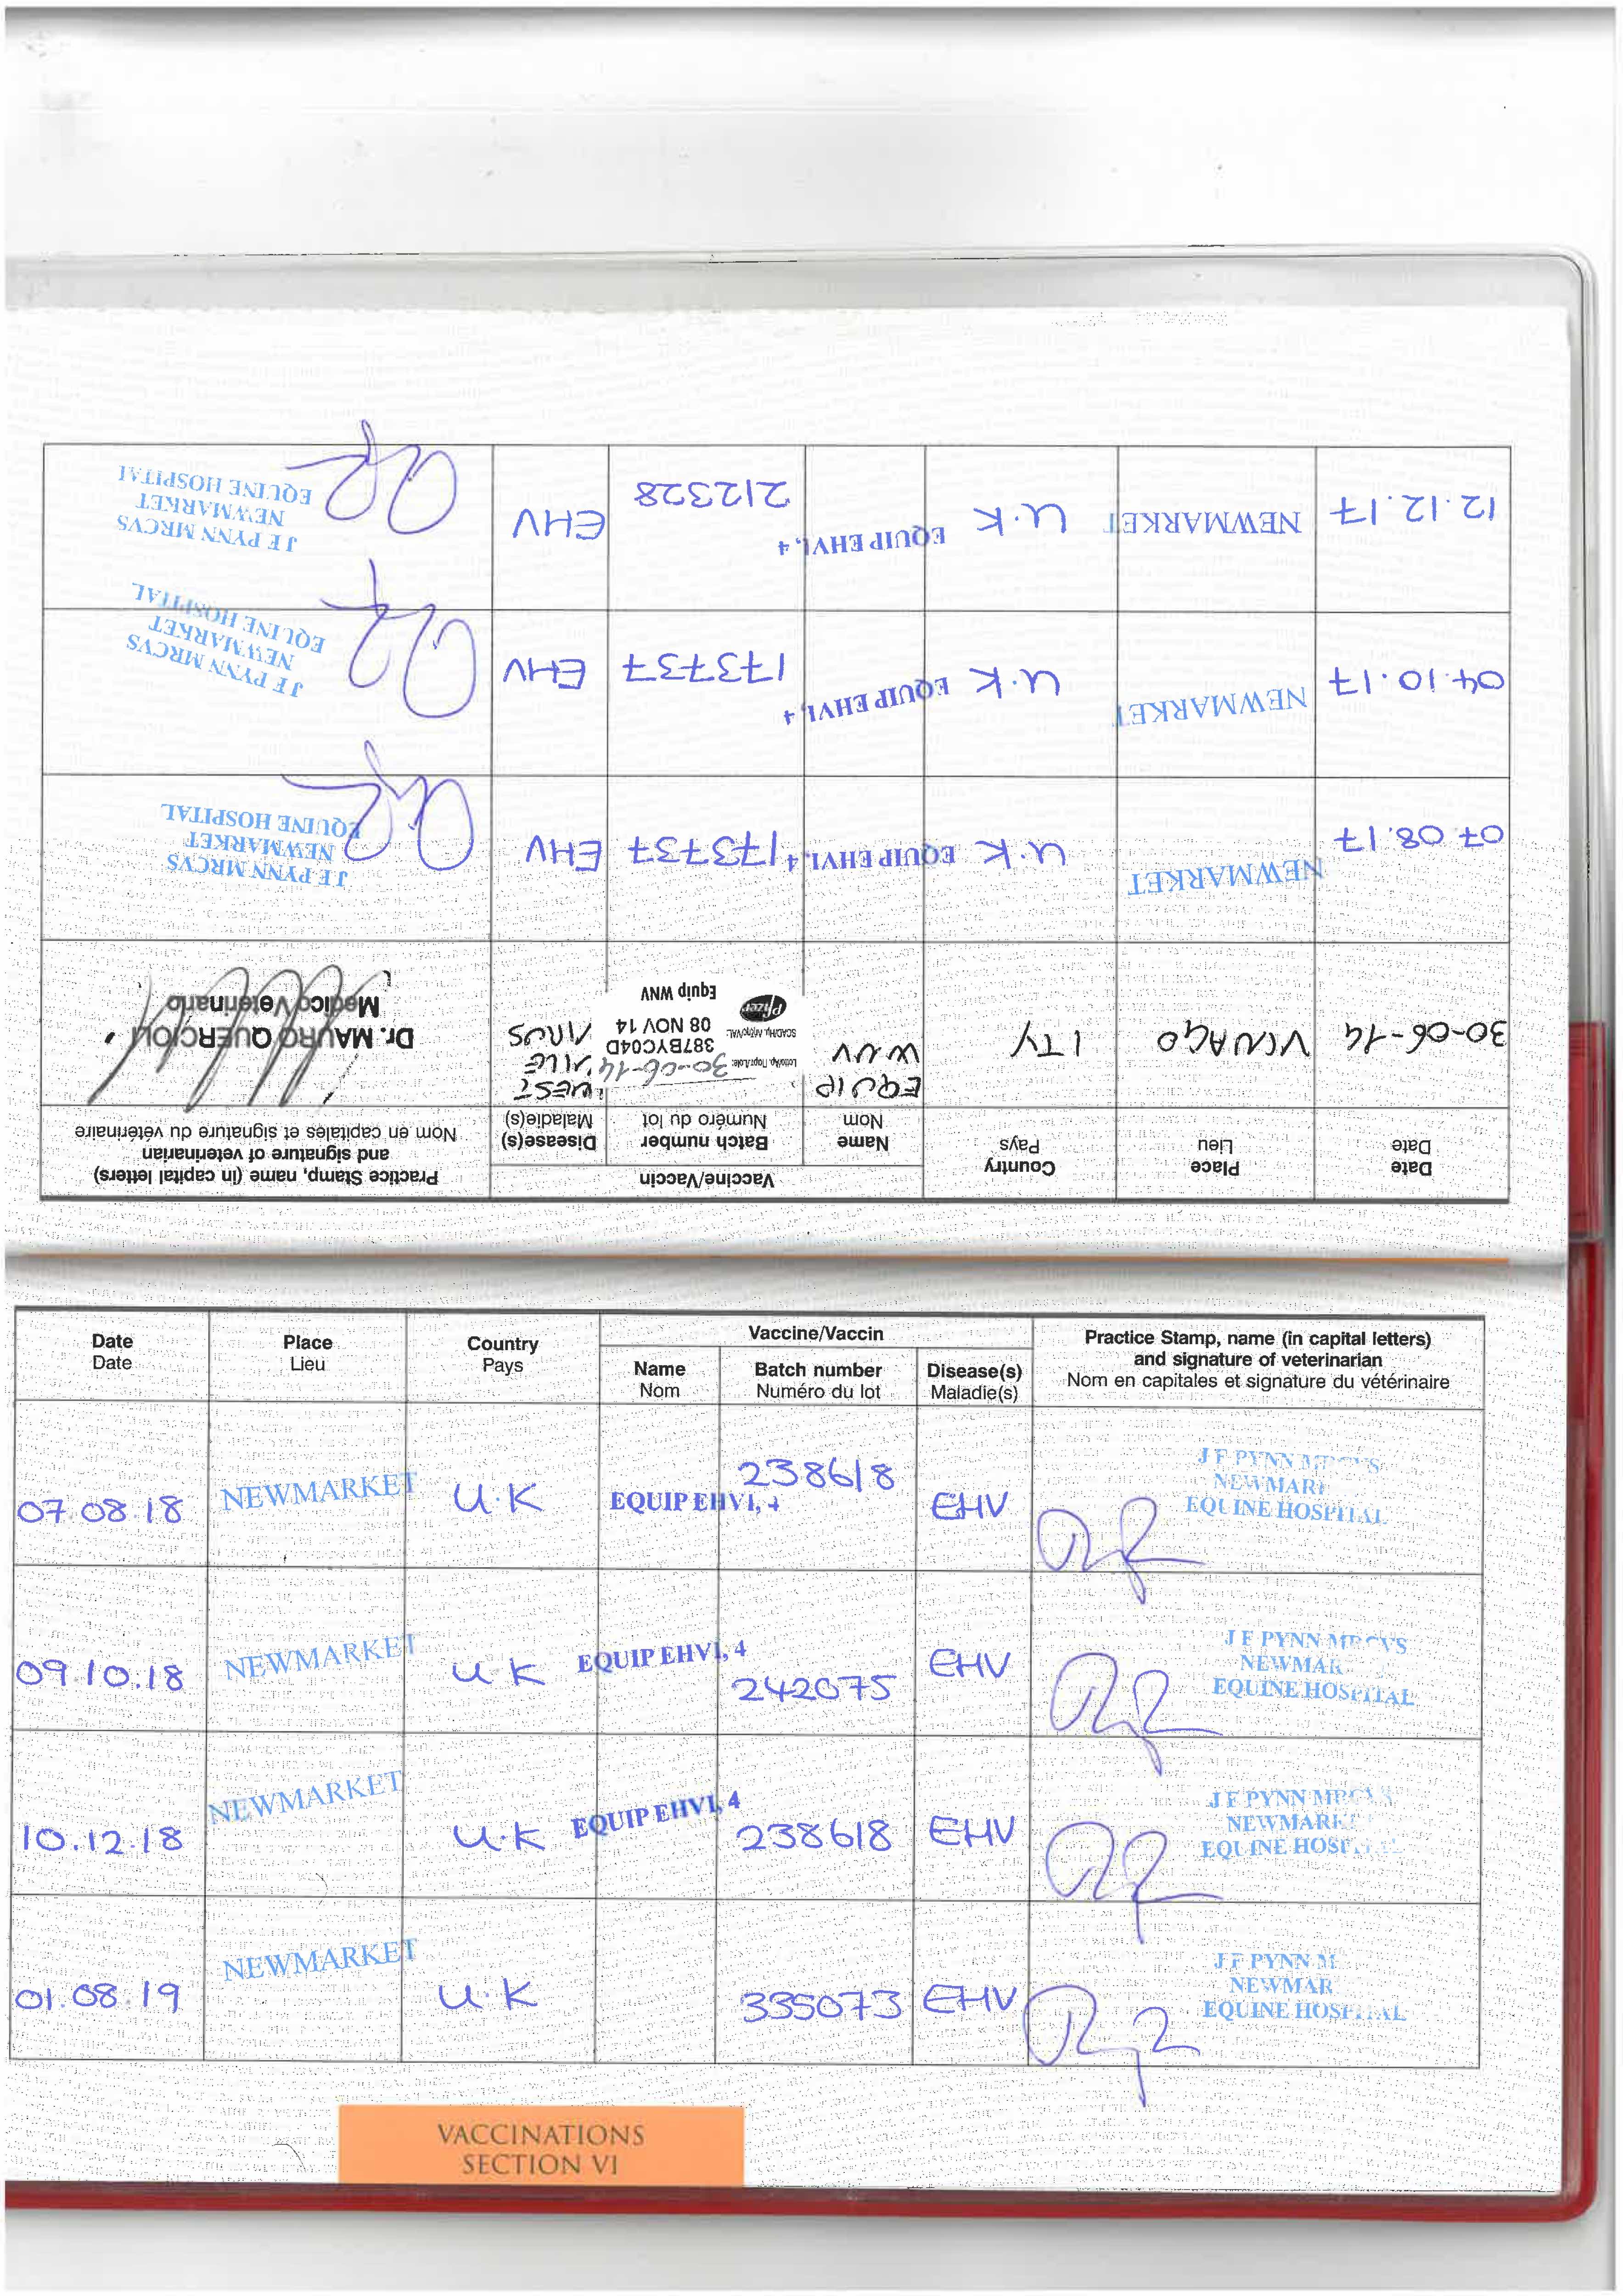 Date
Date
Place
Lieu
Country
Pays
Vaccine/Vaccin
Name
Nom
Batch number
Numéro du lot
Disease(s)
Maladie(s)
Practice Stamp, name (in capital letters)
and signature of veterinarian
Nom en capitales et signature du vétérinaire
30-06-14
ITY
EQUIP
WNV
30-06-14
387BYC04D
08 NOV 14
Pfizer
Equip WNV
WEST
NILE
VIRUS
Dr. MAURO QUERCIOLI
Medico Veterinario
07.08.17
NEWMARKET
U.K
EQUIP EHV1, 4
173737
EHV
J E PYNN MRCVS
NEWMARKET
EQUINE HOSPITAL
04.10.17
NEWMARKET
U.K
EQUIP EHV1, 4
173737
EHV
J E PYNN MRCVS
NEWMARKET
EQUINE HOSPITAL
12.12.17
NEWMARKET
U.K
EQUIP EHV1, 4
212328
EHV
J E PYNN MRCVS
NEWMARKET
EQUINE HOSPITAL
Date
Date
Place
Lieu
Country
Pays
Vaccine/Vaccin
Name
Nom
Batch number
Numéro du lot
Disease(s)
Maladie(s)
Practice Stamp, name (in capital letters)
and signature of veterinarian
Nom en capitales et signature du vétérinaire
07.08.18
NEWMARKET
U.K
EQUIP EHV1, 4
238618
EHV
J E PYNN MRCVS
NEWMAR
EQUINE HOSPITAL
09.10.18
NEWMARKET
U.K
EQUIP EHV1, 4
242075
EHV
J E PYNN MRCVS
NEWMAR
EQUINE HOSPITAL
10.12.18
NEWMARKET
U.K
EQUIP EHV1, 4
238618
EHV
J E PYNN MRCVS
NEWMARK
EQUINE HOSP
01.08.19
NEWMARKET
U.K
335073
EHV
J E PYNN M
NEWMAR
EQUINE HOSPITAL
VACCINATIONS
SECTION VI